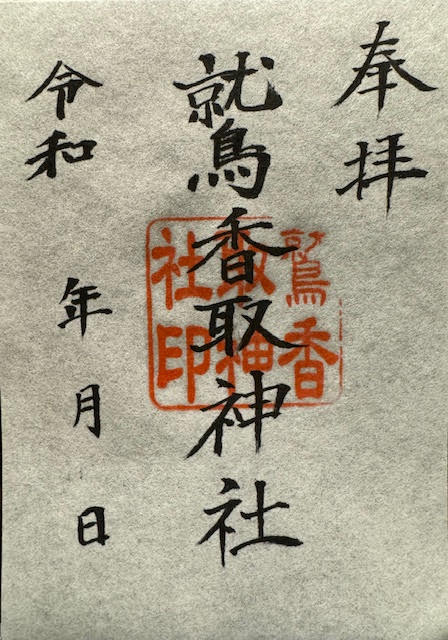 奉拝
鷲香取神社
鷲香
取神
社印
令和 年 月 日